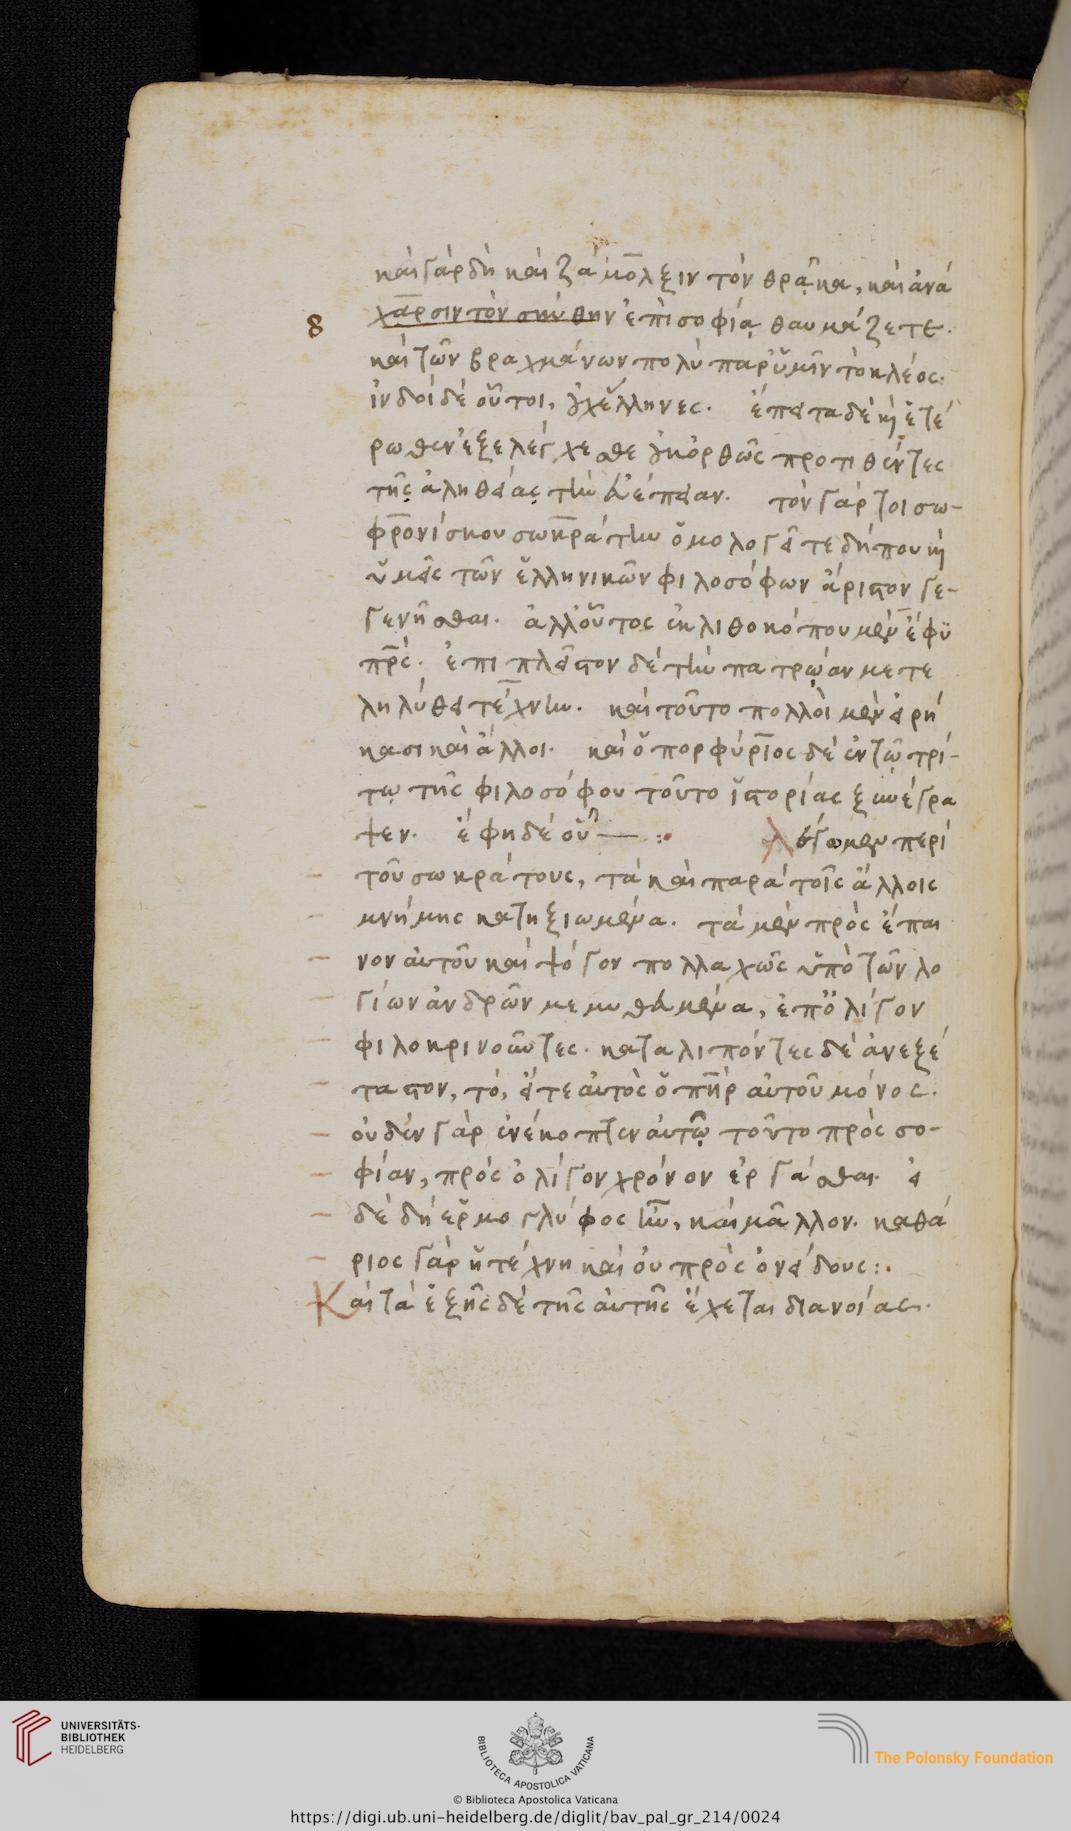 καὶ γὰρ δὴ καὶ ζάμολξιν τὸν θρᾷκα, καὶ ἀνά
8
χαρσιν τὸν σκύθην ἐπὶ σοφίᾳ θαυμάζετε.
καὶ τῶν βραχμάνων πολὺ παρ' ὑμῖν τὸ κλέος.
ἰνδοὶ δὲ οὗτοι, οὐχ' ἕλληνες. ἔπειτα δὲ κἀ ἑτέ
ρωθεν ἐξελέγχεσθε οὐκ ὀρθῶς προτιθέντες
τῆς ἀληθείας τὴν εὐέπειαν. τὸν γάρ τοι σω-
φρονίσκου σωκράτην ὁμολογεῖτε δήπου καὶ
ὑμεῖς τῶν ἑλληνικῶν φιλοσόφων ἄριστον γε-
γενῆσθαι. ἀλλ' οὗτος ἐκ λιθοκόπου μὲν ἔφυ
πρς. ἐπὶ πλεῖστον δὲ τὴν πατρῴαν μετε
ληλύθει τέχνην. καὶ τοῦτο πολλοὶ μὲν εἰρή
κασι καὶ ἄλλοι. καὶ ὁ πορφύριος δὲ ἐν τῷ τρί-
τῳ τῆς φιλοσόφου τοῦτο ἱστορίας ξυνέγρα
ψεν. ἔφη δὲ οὕ :. λέγωμεν περὶ
τοῦ σωκράτους, τὰ καὶ παρὰ τοῖς ἄλλοις
μνήμης κατηξιωμένα. τὰ μὲν πρὸς ἔπαι
νον αὐτοῦ καὶ ψόγον πολλαχῶς ὑπὸ τῶν λο
γίων ἀνδρῶν μεμυθευμένα, ἐπ' ὀλίγον
φιλοκρινοῦντες. καταλιπόντες δὲ ἀνεξέ
ταστον, τό, εἴτε αὐτὸς ὁ πηρ αὐτοῦ μόνος.
οὐδὲν γὰρ ἐνέκοπτεν αὐτῷ τοῦτο πρὸς σο-
φίαν, πρὸς ὀλίγον χρόνον ἐργάσθαι. εἰ
δὲ δὴ ἑρμογλύφος ἦν, καὶ μᾶλλον. καθά
ριος γὰρ ἡ τέχνη καὶ οὐ πρὸς ὀνείδους:.
Καὶ τὰ ἑξῆς δὲ τῆς αὐτῆς ἔχεται διανοίας.
UNIVERSITÄTS-
BIBLIOTHEK
HEIDELBERG
BIBLIOTECA APOSTOLICA VATICANA
The Polonsky Foundation
© Biblioteca Apostolica Vaticana
https://digi.ub.uni-heidelberg.de/diglit/bav_pal_gr_214/0024